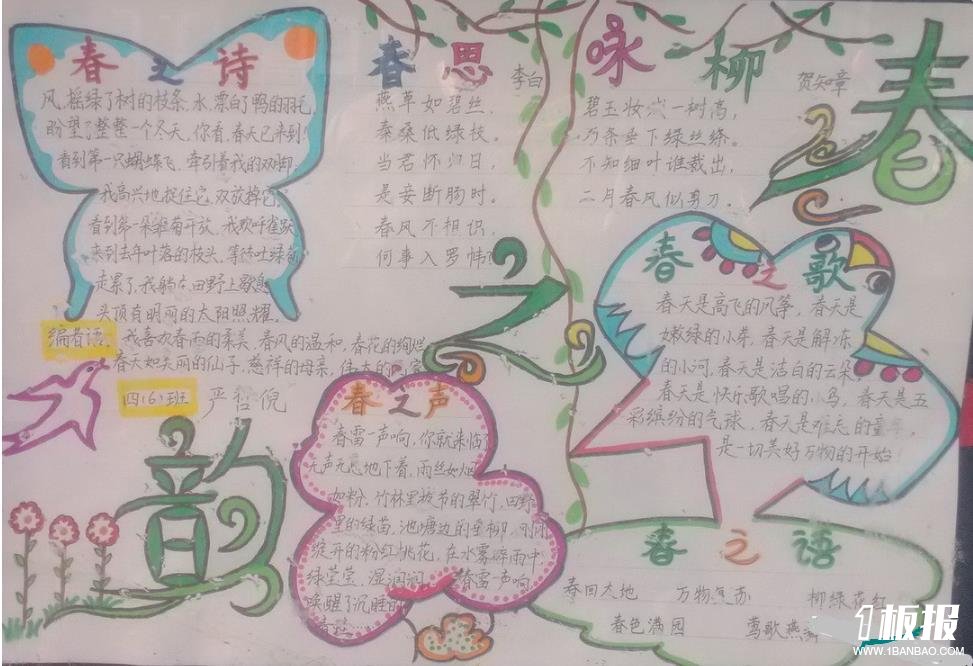 春之诗
风，摇绿了树的枝条，水，漂白了鸭的羽毛
盼望了整整一个冬天，你看，春天已来到！
看到第一只蝴蝶飞，牵引着我的双脚
我高兴地捉住它，又放掉它，
看到第一朵雏菊开放，我欢呼雀跃
来到去年叶落的枝头，等待吐绿
走累了，我躺在田野上歇息
头顶有明丽的太阳照耀。
编者语：我喜欢春雨的柔美，春风的温和，春花的绚烂
春天如美丽的仙子，慈祥的母亲，伟大的
四（6）班 严哲倪
春思
李白
燕草如碧丝，
秦桑低绿枝。
当君怀归日，
是妾断肠时。
春风不相识，
何事入罗帏
咏柳
贺知章
碧玉妆成一树高，
万条垂下绿丝绦。
不知细叶谁裁出，
二月春风似剪刀。
春
之
韵
春之歌
春天是高飞的风筝，春天是
嫩绿的小芽，春天是解冻
的小河，春天是洁白的云朵，
春天是快乐歌唱的小鸟，春天是五
彩缤纷的气球，春天是难忘的童年
是一切美好万物的开始！
春之声
春雷一声响，你就来临了
无声无息地下着，雨丝如烟
如粉，竹林里拔节的翠竹，田野
里的绿苗，池塘边的垂柳，刚刚
绽开的粉红桃花，在水雾碎雨中
绿莹莹，湿润润，春雷一声响
唤醒了沉睡的
春之语
春回大地 万物复苏 柳绿花红
春色满园 莺歌燕舞
1板报
WWW.1BANBAO.COM